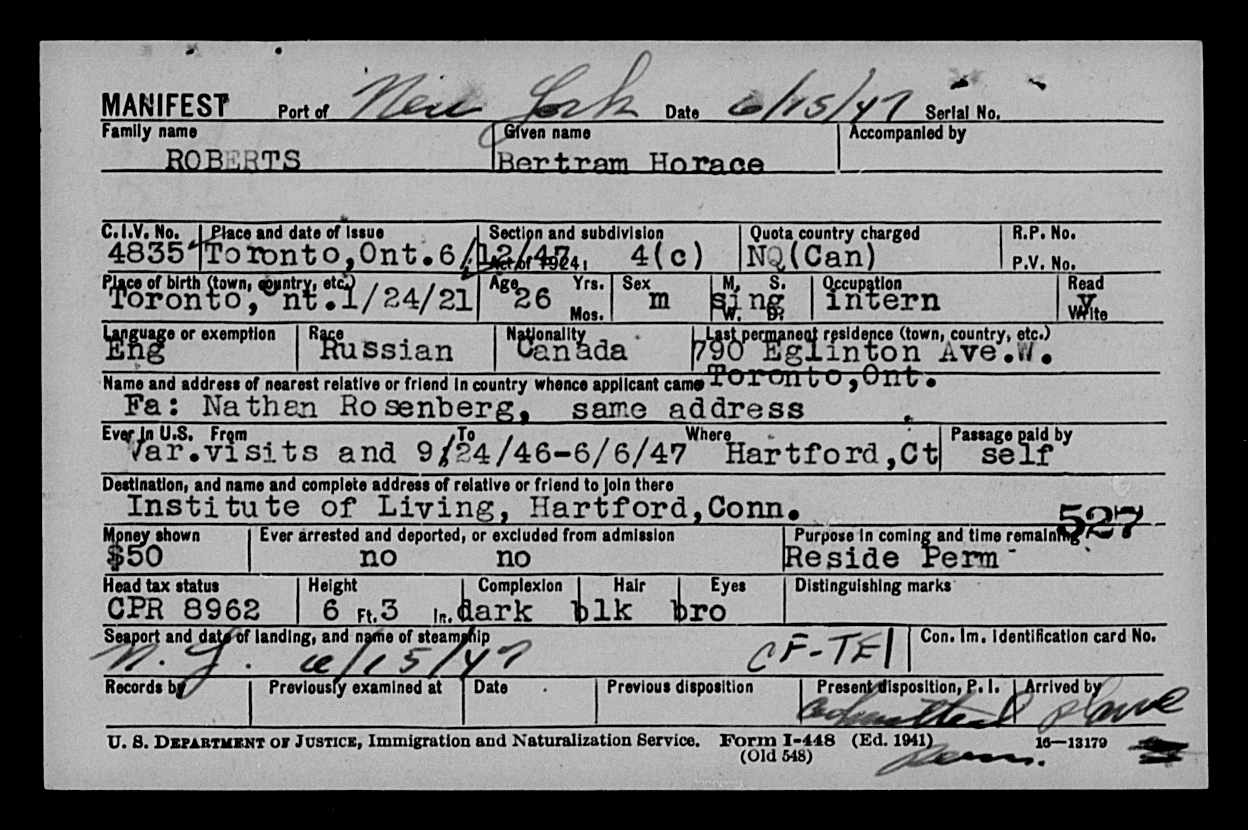 MANIFEST Port of New York Date 6/15/47 Serial No.
Family name Given name Accompanied by
ROBERTS Bertram Horace
C.I.V. No. Place and date of issue Section and subdivision Quota country charged R.P. No.
4835 Toronto,Ont.6/12/47 Act of 1924, 4(c) NQ(Can) P.V. No.
Place of birth (town, country, etc.) Age Yrs. Sex M. S. Occupation Read
Toronto, Ont.1/24/21 26 Mos. m sing W. D. intern y Write
Language or exemption Race Nationality Last permanent residence (town, country, etc.)
Eng Russian Canada 790 Eglinton Ave.W.
Name and address of nearest relative or friend in country whence applicant came Toronto,Ont.
Fa: Nathan Rosenberg, same address
Ever in U.S. From To Where Passage paid by
Var.visits and 9/24/46-6/6/47 Hartford,Ct self
Destination, and name and complete address of relative or friend to join there
Institute of Living, Hartford,Conn.
527
Money shown Ever arrested and deported, or excluded from admission Purpose in coming and time remaining
$50 no no Reside Perm
Head tax status Height Complexion Hair Eyes Distinguishing marks
CPR 8962 6 Ft. 3 In. dark blk bro
Seaport and date of landing, and name of steamship Con. Im. Identification card No.
N.Y. 6/15/47 CF-TEI
Records by Previously examined at Date Previous disposition Present disposition, P. I. Arrived by
admitted plane
U. S. DEPARTMENT OF JUSTICE, Immigration and Naturalization Service. Form I-448 (Ed. 1941) 16—13179
(Old 548) Perm.